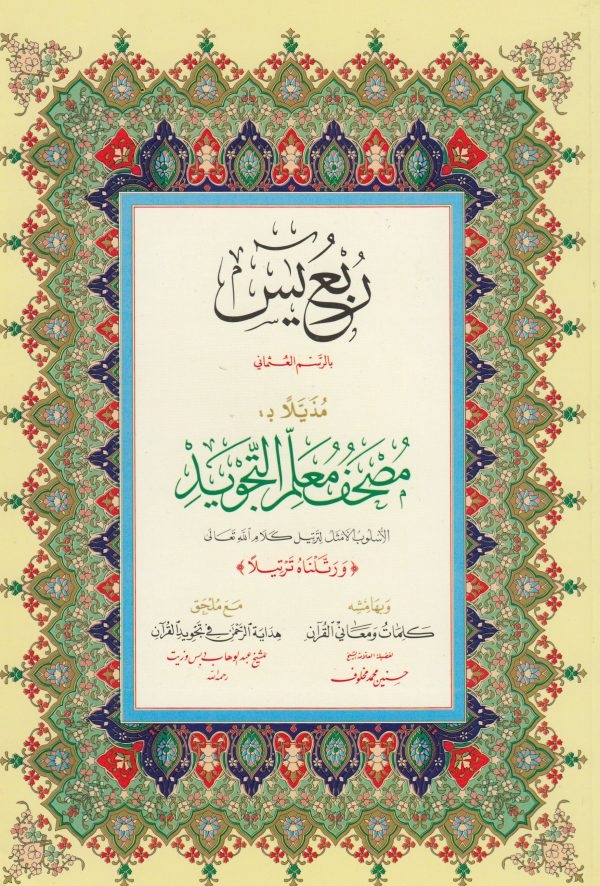 رُبْعُ يسٓ
بالرَّسْمِ العُثْمَانِي
مُذَيَّلًا بـ :
مُصْحَفُ مُعَلِّمِ التَّجْوِيْدِ
الأسلوب الأمثل لترتيل كلام الله تعالى
﴿ وَرَتَّلْنَاهُ تَرْتِيلاً ﴾
وبهامشه
كلمات ومعاني القرآن
لفضيلة العلامة الشيخ
حسنين محمد مخلوف
مع ملحق
هداية الرحمن في تجويد القرآن
للشيخ عبد الوهاب دبس وزيت
رحمه الله